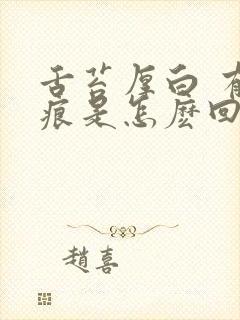 舌苔厚白 有
痕是怎麽回
趙喜